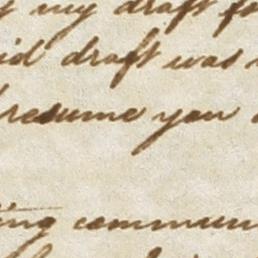 my draft
draft was
resume you
ing commun